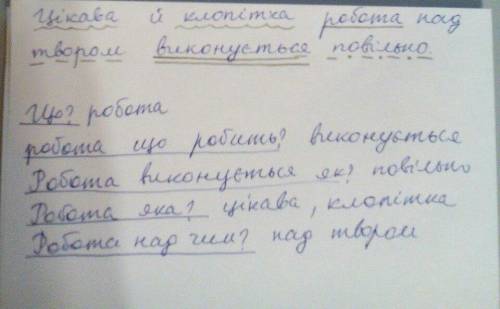 Цікава й клопітка робота над
твором виконується повільно.
Що? робота
робота що робить? виконується
Робота виконується як? повільно
Робота яка? цікава, клопітка
Робота над чим? над твором